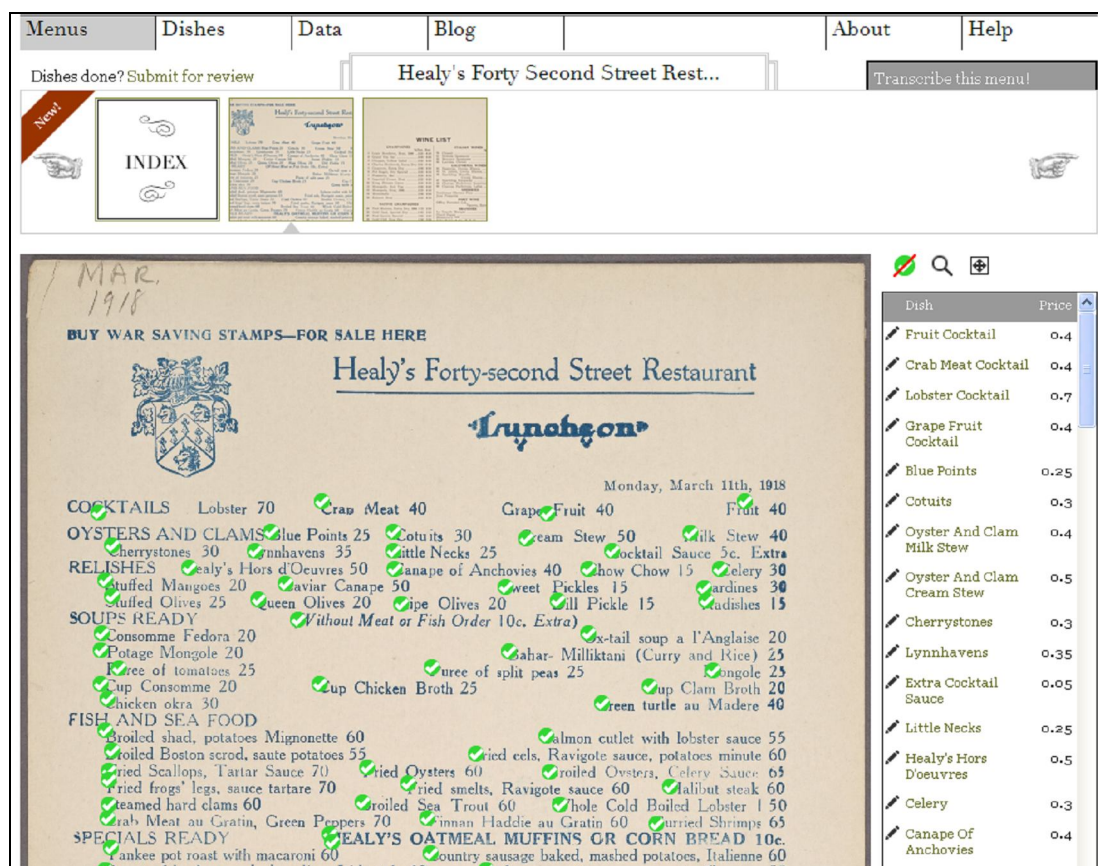 Menus Dishes Data Blog About Help
Dishes done? Submit for review
Healy's Forty Second Street Rest...
Transcribe this menu!
New!
INDEX
Healy's Forty-second Street Res
Luncheon
WINE LIST
MAR.
1918
BUY WAR SAVING STAMPS—FOR SALE HERE
Healy's Forty-second Street Restaurant
Luncheon
Monday, March 11th, 1918
COCKTAILS Lobster 70 Crab Meat 40 Grape Fruit 40 Fruit 40
OYSTERS AND CLAMS Blue Points 25 Cotuits 30 Cream Stew 50 Milk Stew 40
Cherrystones 30 Lynnhavens 35 Little Necks 25 Cocktail Sauce 5c. Extra
RELISHES Healy's Hors d'Oeuvres 50 Canape of Anchovies 40 Chow Chow 15 Celery 30
Stuffed Mangoes 20 Caviar Canape 50 Sweet Pickles 15 Sardines 30
Stuffed Olives 25 Queen Olives 20 Ripe Olives 20 Dill Pickle 15 Radishes 15
SOUPS READY (Without Meat or Fish Order 10c. Extra)
Consomme Fedora 20 Ox-tail soup a l'Anglaise 20
Potage Mongole 20 Bahar- Milliktani (Curry and Rice) 25
Puree of tomatoes 25 Puree of split peas 25 Mongole 25
Cup Consomme 20 Cup Chicken Broth 25 Cup Clam Broth 20
Chicken okra 30 Green turtle au Madere 40
FISH AND SEA FOOD
Broiled shad, potatoes Mignonette 60 Salmon cutlet with lobster sauce 55
Broiled Boston scrod, saute potatoes 55 Fried eels, Ravigote sauce, potatoes minute 60
Fried Scallops, Tartar Sauce 70 Fried Oysters 60 Broiled Oysters, Celery Sauce 65
Fried frogs' legs, sauce tartare 70 Fried smelts, Ravigote sauce 60 Halibut steak 60
Steamed hard clams 60 Broiled Sea Trout 60 Whole Cold Boiled Lobster 1 50
Crab Meat au Gratin, Green Peppers 70 Finnan Haddie au Gratin 60 Curried Shrimps 65
SPECIALS READY HEALY'S OATMEAL MUFFINS OR CORN BREAD 10c.
Yankee pot roast with macaroni 60 Country sausage baked, mashed potatoes, Italienne 60
Dish Price
Fruit Cocktail 0.4
Crab Meat Cocktail 0.4
Lobster Cocktail 0.7
Grape Fruit
Cocktail 0.4
Blue Points 0.25
Cotuits 0.3
Oyster And Clam
Milk Stew 0.4
Oyster And Clam
Cream Stew 0.5
Cherrystones 0.3
Lynnhavens 0.35
Extra Cocktail
Sauce 0.05
Little Necks 0.25
Healy's Hors
D'oeuvres 0.5
Celery 0.3
Canape Of
Anchovies 0.4